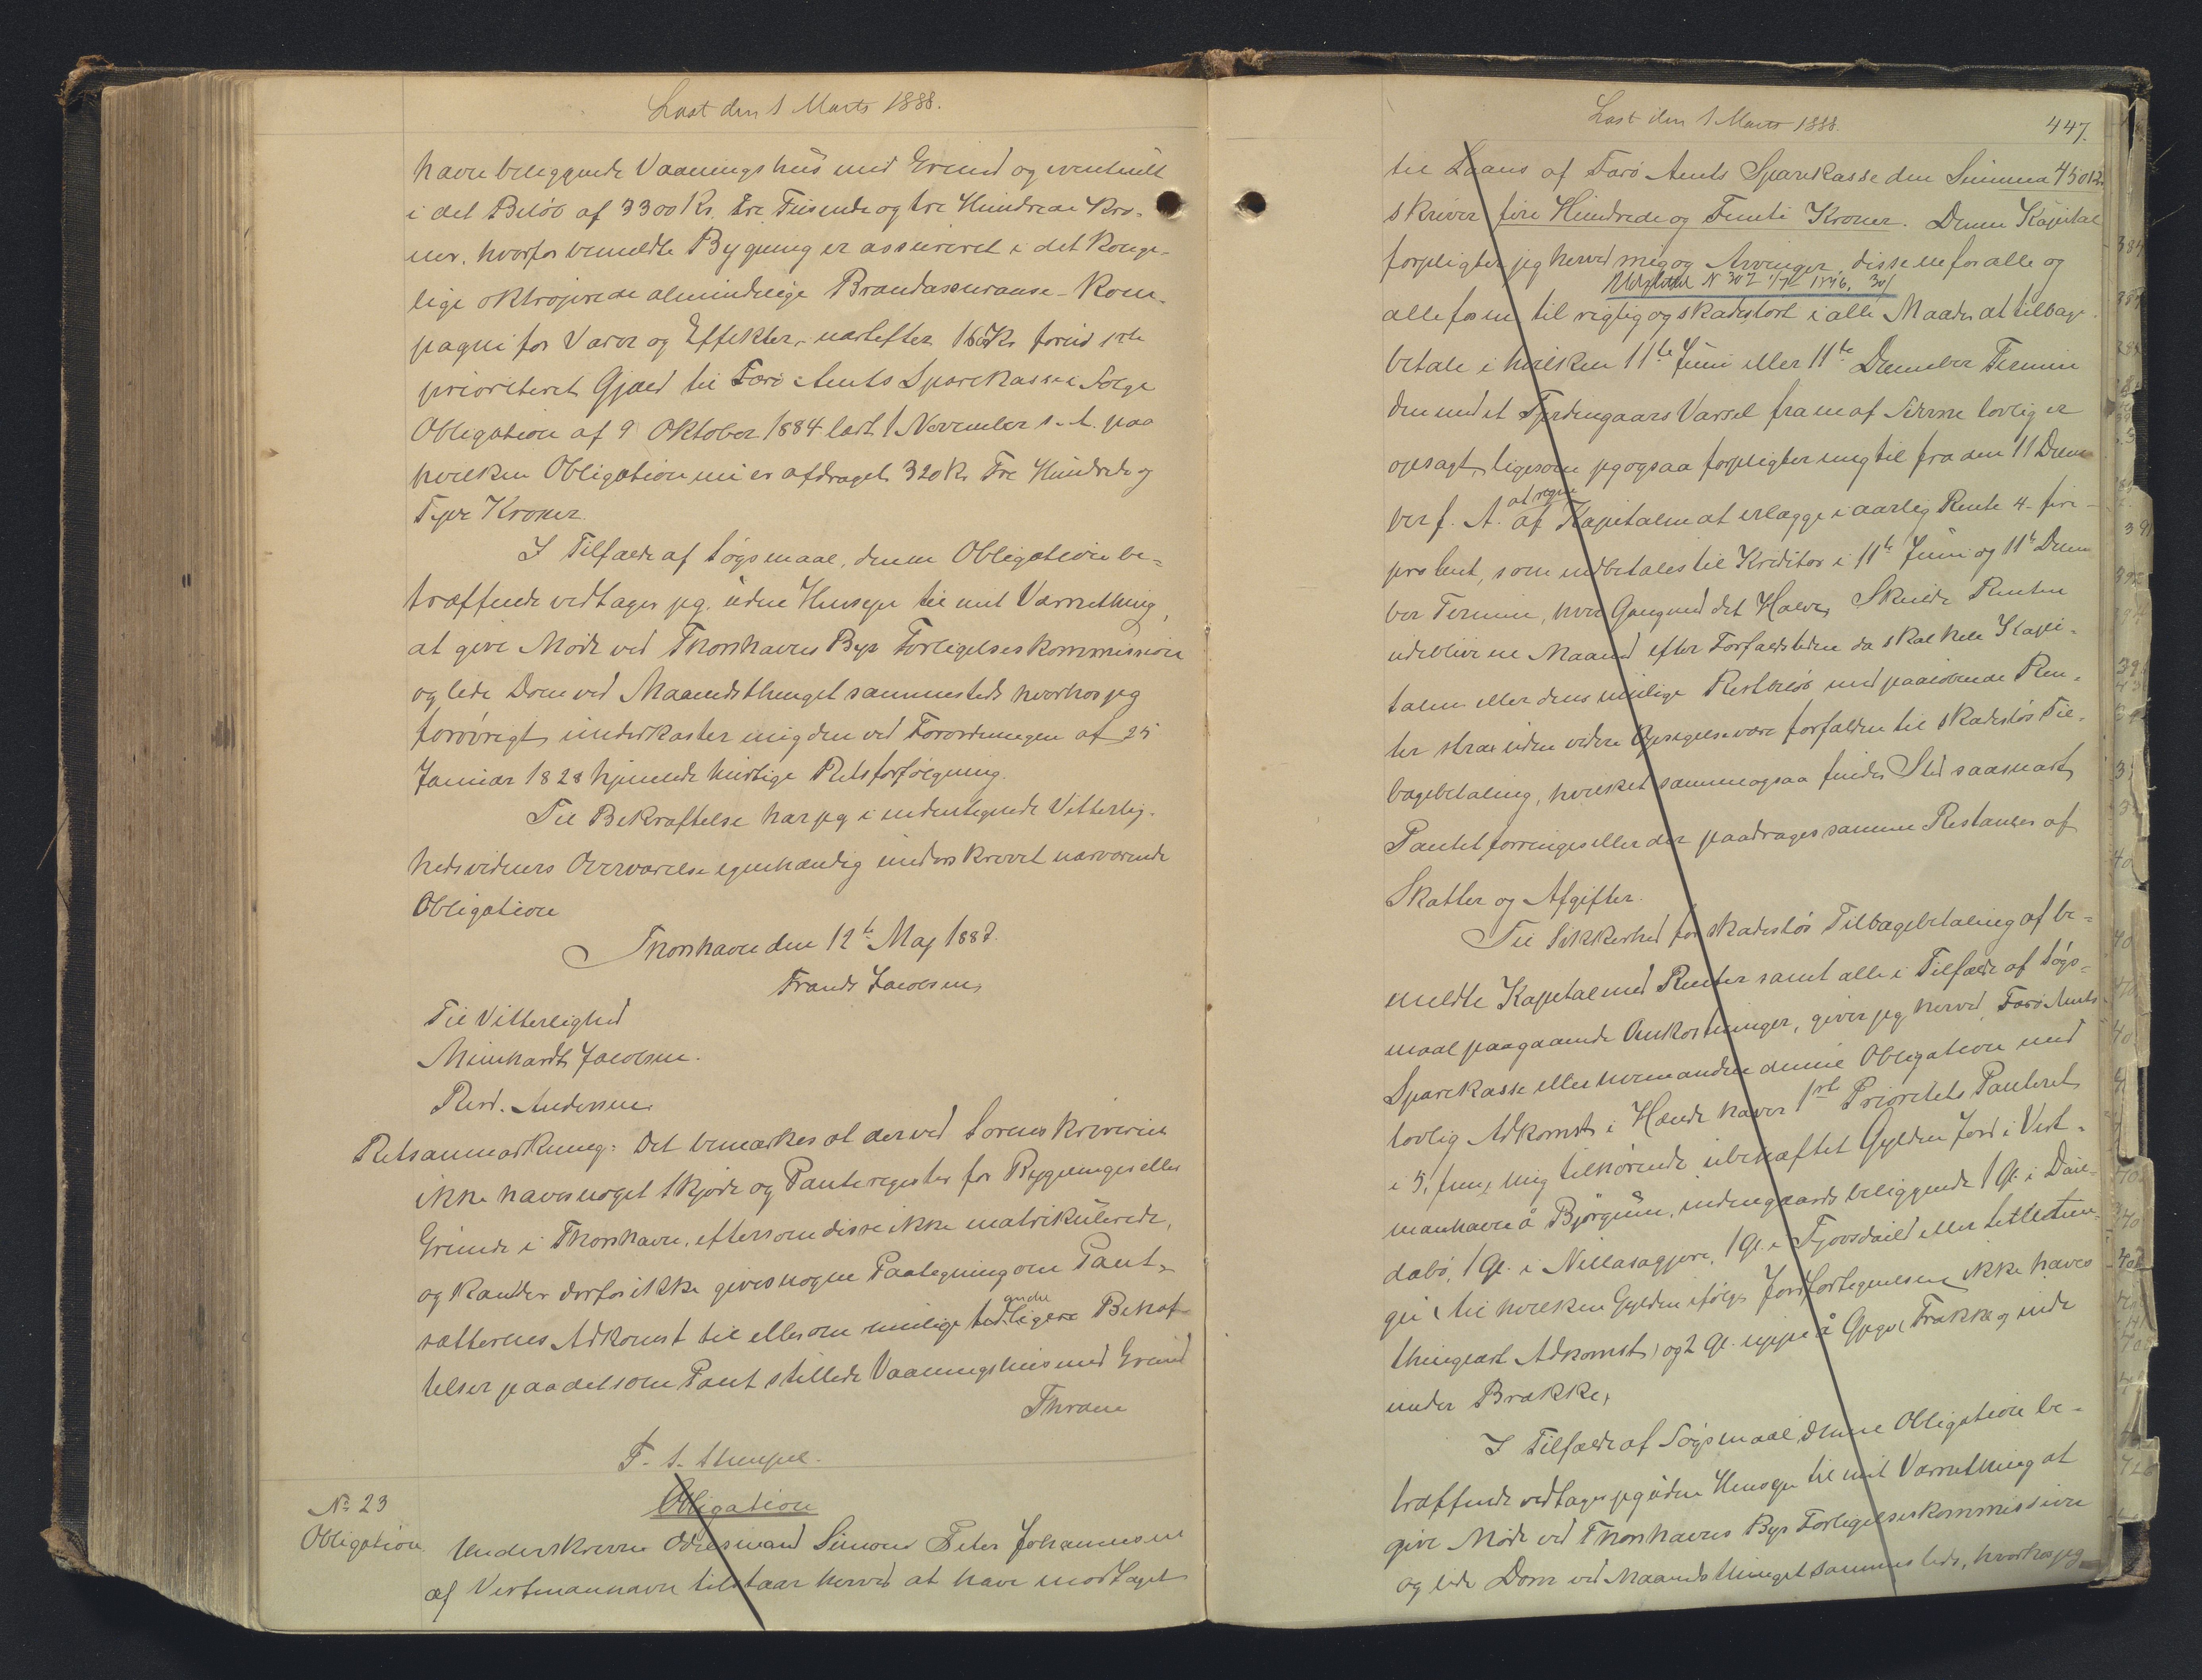 Læst den 1 Marts 1888.
havn beliggende Vaaningshus med Grund og eventuelt
i det Beløb af 3300 Kr. Tre Tusende og tre Hundrede Kro-
ner, hvorfor bemeldte Bygning er assureret i det Konge-
lige oktrojerede almindelige Brandassurance-Kom-
pagni for Varer og Effekter, næstefter 1680 Kr forud 1ste
prioriteret Gjæld til Færø Amts Sparekasse i Følge
Obligation af 9 Oktober 1884 læst 1 November s. A. paa
hvilken Obligation nu er afdraget 320 Kr Tre Hundrede og
Tyve Kroner.
I Tilfælde af Søgsmaal, denne Obligation be-
træffende vedtager jeg, uden Hensyn til mit Værnething,
at give Møde ved Thorshavns Byes Forligelseskommission
og lide Dom ved Maanedsthinget sammesteds hvorhos jeg
forøvrigt underkaster mig den ved Forordningen af 25
Januar 1828 hjemlede hurtige Retsforfølgning.
Til Bekræftelse har jeg i undertegnede Vitterlig-
hedsvidners Overværelse egenhændig underskrevet nærværende
Obligation
Thorshavn den 12te Maj 1887.
Frands Jacobsen,
Til Vitterlighed
Meinhardt Jacobsen.
Rasd. Andersen.
Retsanmærkning: Det bemærkes at der ved Sorenskriveriet
ikke haves noget Skjøde og Panteregister for Bygninger eller
Grunde i Thorshavn, eftersom disse ikke matrikulerede,
og kan der derfor ikke gives nogen Paategning om Pant-
sætterens Adkomst til eller om mulige andre tidligere Behæf-
telser paa det som Pant stillede Vaaningshus med Grund
Thrane
F. S. Stempel.
No 23
Obligation
Obligation
Underskrevne Odelsmand Simon Peter Johannesen
af Vestmanhavn tilstaar herved at have modtaget
Læst den 1 Marts 1888.
447.
til Laans af Færø Amts Sparekasse den Summa 450 Kr
skriver fire Hundrede og Femti Kroner. Denne Kapital
forpligter jeg herved mig og Arvinger, disse en for alle og
Udslettet N 307 1/7 1896, 301
alle for en til rigtig og skadesløst i alle Maader at tilbage-
betale i hvilken 11te Juni eller 11te December Termin
den med et Fjerdingaars Varsel fra en af Siderne lovlig er
opsagt, ligesom jeg ogsaa forpligter mig til fra den 11 Decem-
ber f. A. at regne af Kapitalen at erlægge i aarlig Rente 4 - fire -
pro Cent, som indbetales til Kreditor i 11te Juni og 11te Decem-
ber Termin, hver Gang med det Halve. Skulde Renten
udeblive en Maaned efter Forfaldstiden da skal hele Kapi-
talen eller dens mulige Restbeløb med paaløbende Ren-
ter strax uden videre Opsigelse være forfalden til skadesløs Til-
bagebetaling, hvilket samme ogsaa finder Sted saasnart
Pantet forringes eller der paadrages samme Restancer af
Skatter og Afgifter.
Til Sikkerhed for skadesløs Tilbagebetaling af be-
meldte Kapital med Renter samt alle i Tilfælde af Søgs-
maal paagaaende Omkostninger, giver jeg herved Færø Amts
Sparekasse eller hvemandre denne Obligation med
lovlig Adkomst i Hænde haver 1ste Prioritets Panteret
i 5, fem, mig tilhørende ubehæftet Gylden Jord i Vest-
manhavn å Bjørgum, indengaards beliggende 1 Gl. i Dale-
dabø, 1 Gl. i Nillasagjøre, 1 Gl. i Fjovsdail eller
(til hvilken Gylden ifølge Jordfortegnelsen ikke haves
thinglæst Adkomst) og 2 Gl. uppe å Gjegv, Frakke og inde
under Brække,
I Tilfælde af Søgsmaal denne Obligation be-
træffende vedtager jeg uden Hensyn til mit Værnething at
give Møde ved Thorshavns Byes Forligelseskommission
og lide Dom ved Maanedsthinget sammesteds, hvorhos jeg